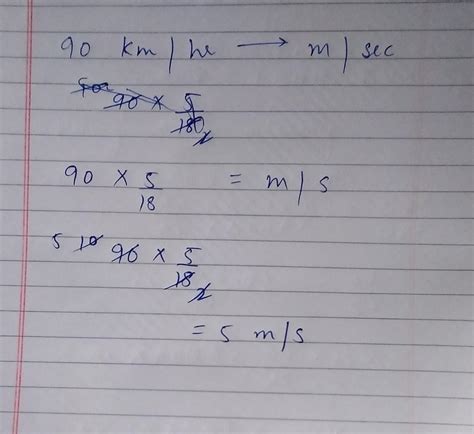 90 km/hr → m/sec
50 90 × 5/180 2
90 × 5/18 = m/s
5 10 90 × 5/18 2
= 5 m/s